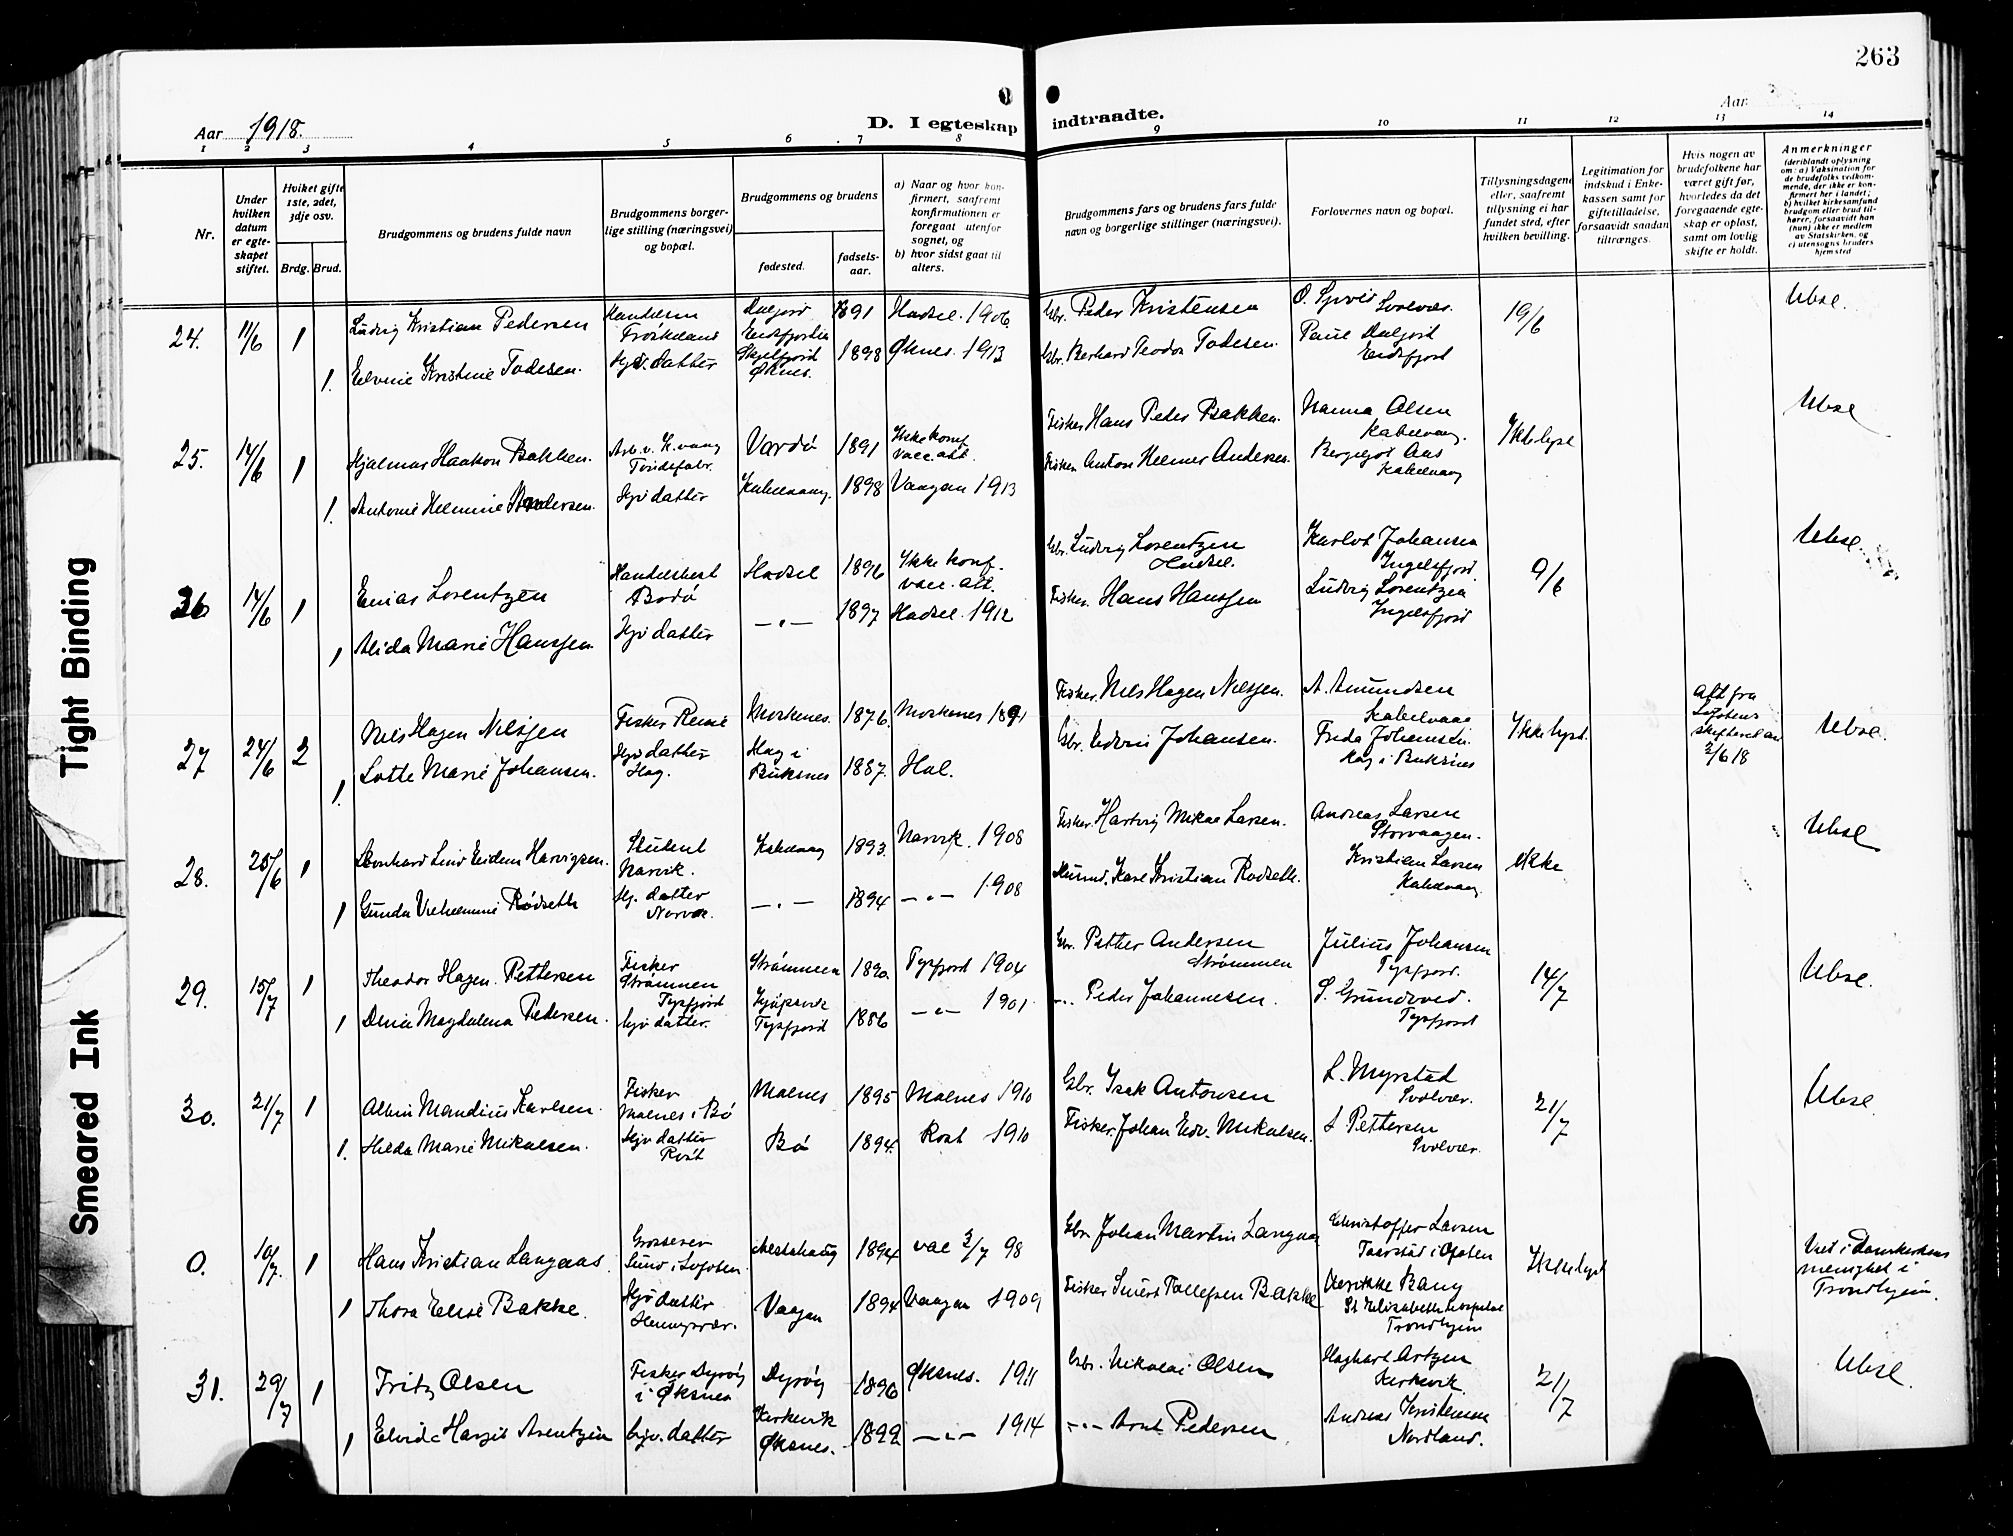 263
Aar 1918.
D. I egteskap indtraadte.
Aar
1 2 3 4 5 6 7 8 9 10 11 12 13 14
Nr.
Under hvilken datum er egteskapet stiftet.
Hviket gifte 1ste, 2det, 3dje osv.
Brdg. Brud.
Brudgommens og brudens fulde navn
Brudgommens borgerlige stilling (næringsvei) og bopæl.
Brudgommens og brudens
fødested.
fødselsaar.
a) Naar og hvor konfirmert, saafremt konfirmationen er foregaat utenfor sognet, og
b) hvor sidst gaat til alters.
Brudgommens fars og brudens fars fulde navn og borgerlige stillinger (næringsvei).
Forlovernes navn og bopæl.
Tillysningsdagene eller, saafremt tillysning ei har fundet sted, efter hvilken bevilling.
Legitimation for indskud i Enkekassen samt for giftetilladelse, forsaavidt saadan tiltrænges.
Hvis nogen av brudefolkene har været gift før, hvorledes da det foregaaende egteskap er opløst, samt om lovlig skifte er holdt.
Anmerkninger (deriblandt oplysning om: a) Vaksination for de brudefolks vedkommende, der ikke er konfirmert her i landet; b) hvilket kirkesamfund brudgom eller brud tilhører, forsaavidt han (hun) ikke er medlem av Statskirken, og c) utensogns bruders hjemsted
24. 11/6 1 Ludvig Kristian Pedersen 1891 Hadsel. 1906. Gbr. Peder Kristensen Svolvær. 19/6 Ubse.
1. Elvine Kristine Todesen. Hjv. datter Øksnes. 1898 Øksnes. 1913 Gbr. Berhard Teodor Todesen. Eidsfjord
25. 14/6 1 Hjalmar Haakon Bakken. Vardø 1891 Ikke konf. vacc. att. Fisker Hans Peder Bakken. Nanna Olsen Kabelvaag. Ikke lyst Ubse
1. Antonie Helmine Andersen. Hjv datter Kabelvaag. 1898 Vaagan 1913 Fisker Anton Helmer Andersen. Kabelvaag
26 14/6 1 Enias Lorentzen Bodø Hadsel 1896 Ikke konf. vacc. att. Gbr. Ludvig Lorentzen Hadsel. Karlot Johansen Ingelsfjord. 9/6 Ubse.
1 Alida Marie Hanssen Hjv datter — „ — 1897 Hadsel. 1912 Fisker Hans Hanssen Ludvig Lorentzen Ingelsfjord
27 24/6 2 Nils Hagen Nilssen Fisker Reine Moskenes. 1876. Moskenes 1891 Fisker. Nils Hagen Nilssen. A. Amundsen Kabelvaag Ikke lyst. Att fra Lofotens skifteret av 3/6 18 Ubse.
1. Lotte Marie Johansen. Hjv datter Hag. Hag i Buksnes 1887. Hol. Gbr. Edvin Johansen. Freda Johansen. Hag i Buksnes
28. 25/6 1 Leonhard Lind Eidem Harvigsen. Student Narvik. Kabelvaag 1893. Narvik. 1908 Fisker. Hartvig Mikal Larsen. Andreas Larsen Storvaagen. Ikke Ubse
1 Gunda Vilhelmine Rødseth Hj. datter Narvik. — „ — 1894 — „ — 1908 Karl Kristian Rødseth. Kristian Larsen Kabelvaag.
29. 15/7 1 Theodor Hagen. Pettersen Fisker Strømmen Tysfjord Strømmen 1890. Tysfjord 1904 Gbr. Petter Andersen Strømmen Julius Johansen Tysfjord. 14/7 Ubse.
1 Dina Magdalena Pedersen. Hjv datter. Kjøpsvik Tysfjord 1886 — „ — 1901. — „ — Peder Johannesen. S. Grundvad. Tysfjord
30. 21/7 1 Albin Mandius Karlsen. Fisker Malnes i Bø Malnes 1895 Malnes 1910 Gbr. Isak Antonsen L. Myrstad Svolvær. 21/7 Ubse.
1. Hilda Marie Mikalsen. Hjv datter Røst Bø 1894. Røst 1910 Fisker. Johan Edv. Mikalsen. L Pettersen Svolvær.
0. 10/7. 1 Hans Kristian Langaas. Grosserer Sund i Lofoten. Alstahaug 1894 vac 3/7 98 Gbr. Johan Martin Langaas Christoffer Larsen Taarstad i Ofoten Ikke lyst Viet i Domkirkens menighet i Trondhjem.
1 Thora Elise Bakke. Hjv datter Henningsvær. Vaagan 1894 Vaagan 1909 Fisker Sivert Tollefsen Bakke Bang St Elisabeth hospital Trondhjem
31. 29/7 1 Fritz Olsen Fisker Dyrøy i Øksnes Dyrøy 1896 Øksnes. 1911 Gbr. Nikolai Olsen Kirkevik. 21/7 Ubse.
1 Elvida Hargit Arentzen Hjv. datter Kirkevik Øksnes. 1899 — „ — 1914 — „ — Arnt Pedersen Andreas Kristensen Nordland.
Tight Binding
Smeared Ink